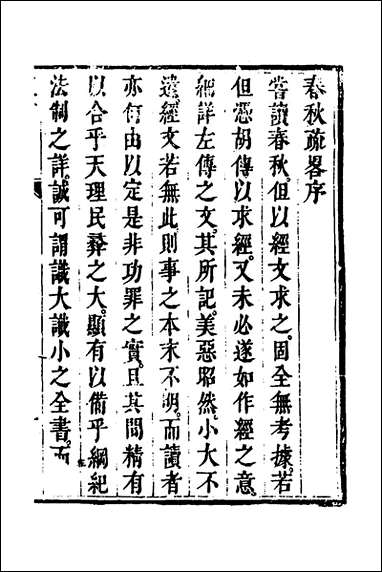 春秋疏畧序
嘗讀春秋。但以經文求之。固全無考據。若
但憑胡傳以求經。又未必遂如作經之意。
細詳左傳之文。其所記。美惡昭然。小大不
遺。經文若無此。則事之本末不明。而讀者
亦何由以定是非功罪之實。且其間精有
以合乎天理民彝之大。顯有以備乎綱紀
法制之詳。誠可謂識大識小之全書。而